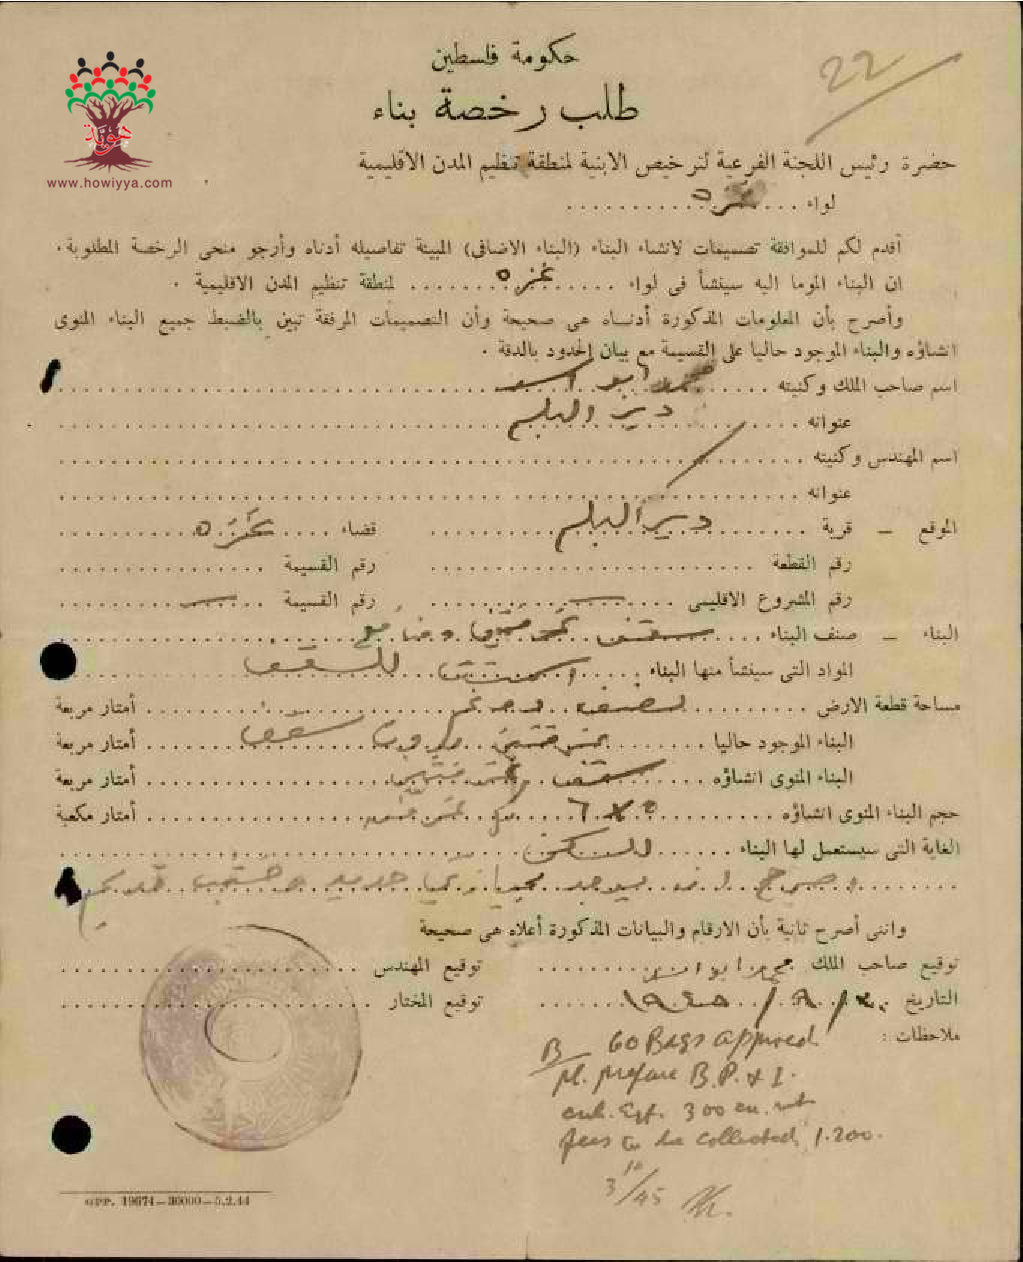 22
هوية
www.howiyya.com
حكومة فلسطين
طلب رخصة بناء
حضرة رئيس اللجنة الفرعية لترخيص الابنية لمنطقة تنظيم المدن الاقليمية
لواء غزه
أقدم لكم للموافقة تصميمات لانشاء البناء (البناء الاضافى) المبينة تفاصيله أدناه وأرجو منحى الرخصة المطلوبة .
ان البناء الموما اليه سينشأ فى لواء غزه لمنطقة تنظيم المدن الاقليمية .
وأصرح بأن المعلومات المذكورة أدناه هى صحيحة وأن التصميمات المرفقة تبين بالضبط جميع البناء المنوى
انشاؤه والبناء الموجود حاليا على القسيمة مع بيان الحدود بالدقة .
اسم صاحب الملك وكنيته محمد ابو اسد
عنوانه دير البلح
اسم المهندس وكنيته
عنوانه
الموقع — قرية دير البلح قضاء غزه
رقم القطعة رقم القسيمة
رقم المشروع الاقليمى رقم القسيمة
البناء — صنف البناء سقف غرفتين
المواد التى سينشأ منها البناء اسمنت للسقف
مساحة قطعة الارض نصف دونم أمتار مربعة
البناء الموجود حاليا غرفتين بدون سقف أمتار مربعة
البناء المنوى انشاؤه سقف غرفتين أمتار مربعة
حجم البناء المنوى انشاؤه أمتار مكعبة
الغاية التى سيستعمل لها البناء للسكن
وانى أصرح ثانية بأن الارقام والبيانات المذكورة أعلاه هى صحيحة
توقيع صاحب الملك محمد ابو اسد توقيع المهندس
التاريخ توقيع المختار
ملاحظات :
B/ 60 Bags approved
Pl. prepare B.P. & I.
cub. 300 cu. mt
fees to be collected 1.200.
3/10/45
GPP. 19674—30000—5.2.44